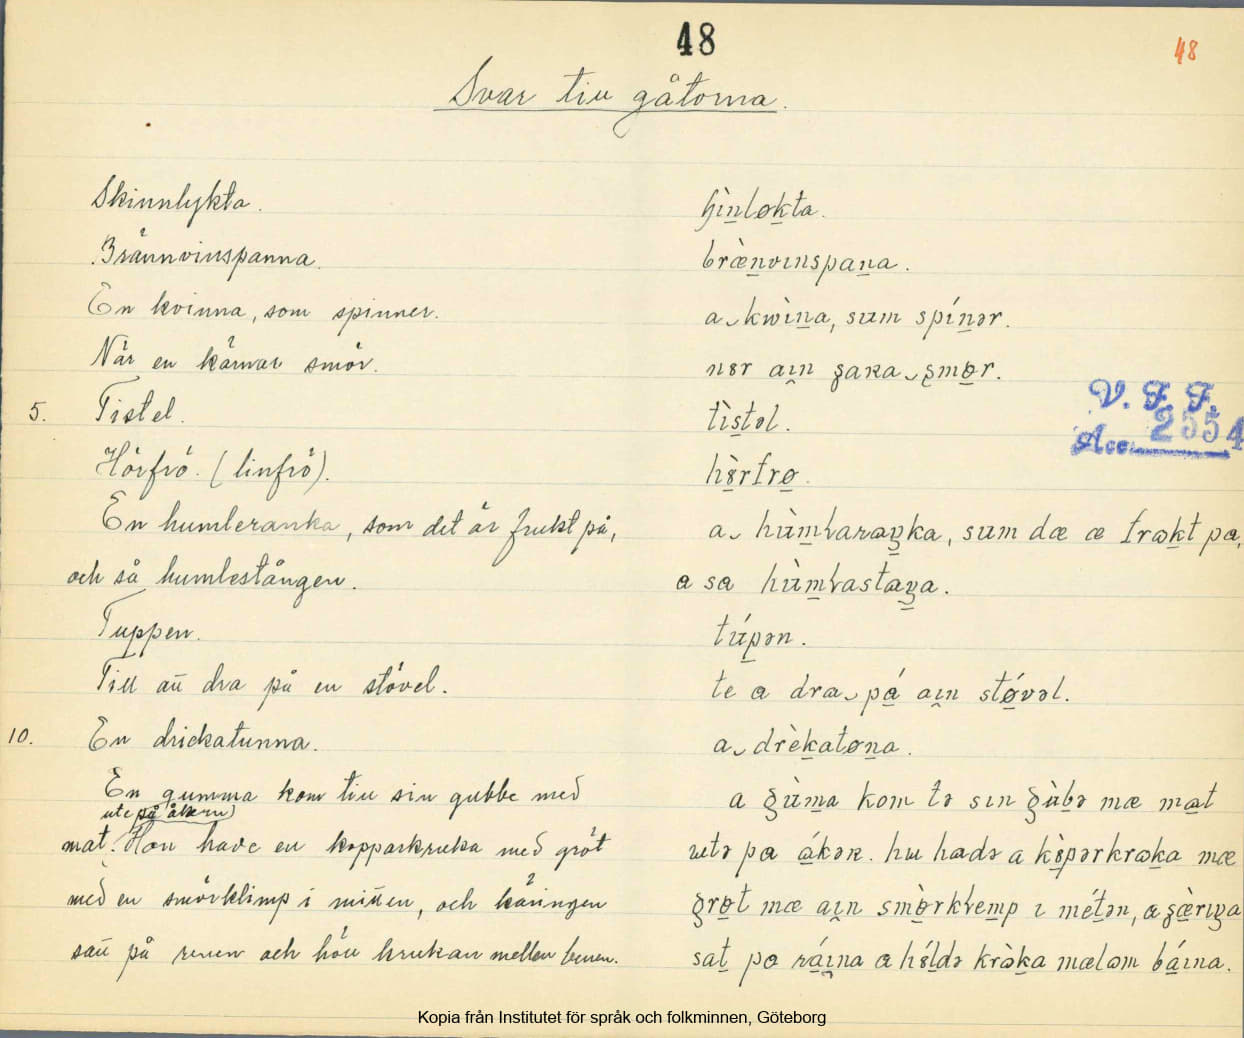 48
48
Svar till gåtorna.
Skinnlykta.
Brännvinspanna.
En kvinna, som spinner.
När en kärnar smör.
5. Tistel.
Hörfrö. (linfrö).
En humleranka, som det är frukt på,
och så humlestången.
Tuppen.
Till att dra på en stövel.
10. En drickatunna.
En gumma kom till sin gubbe med
ute på åkern)
mat. Hon hade en kopparkruka med gröt
med en smörklimp i mitten, och käringen
satt på renen och höll krukan mellan benen.
ɧìnløkta.
brænvɩnspana.
a kwìna, sum spínər.
nɤr aɩn ʂaꞃa smør.
tìstəl.
hɤ̀rfrø.
a hùmɭaraŋka, sum dæ æ frɷkt pɑ,
ɑ sɑ hùmɭastaŋa.
túpən.
te ɑ dra pɑ́ aɩn stǿvəl.
a drèkatøna.
a gùma kom tə sɩn gùbə mæ mat
ʉtə pɑ ɑ́kəꞃ. hɷ hadə a kɤ̀pərkrɷka mæ
grøt mæ aɩn smø̀rkɭemp ɩ métən, ɑ ʂæ̀rɩŋa
sat pɑ ráɩna ɑ hɤ́ldə krɷ̀ka mæləm báɩna.
V. F. F.
Acc. 2554
Kopia från Institutet för språk och folkminnen, Göteborg